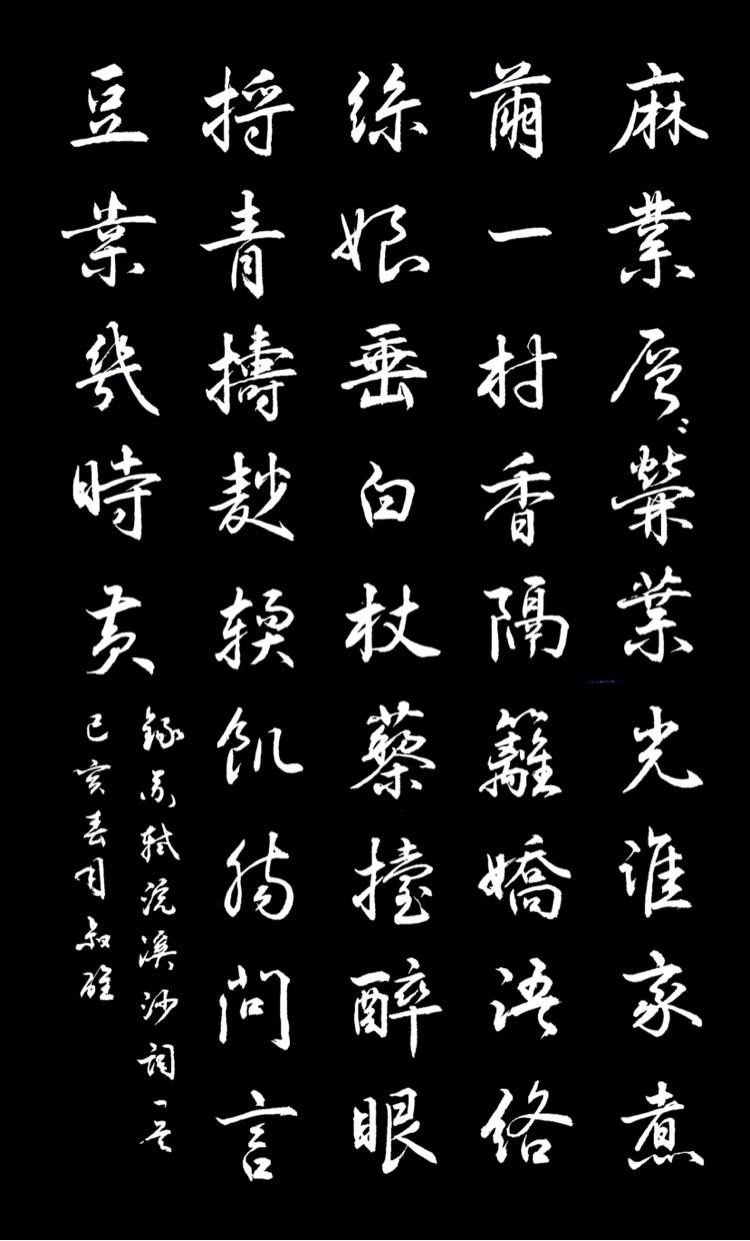 麻葉層〻檾葉光誰家煮
繭一村香隔籬嬌語絡
絲娘垂白杖藜擡醉眼
捋青擣麨輭飢腸問言
豆葉幾時黃
錄蘇軾浣溪沙詞一首
己亥春月